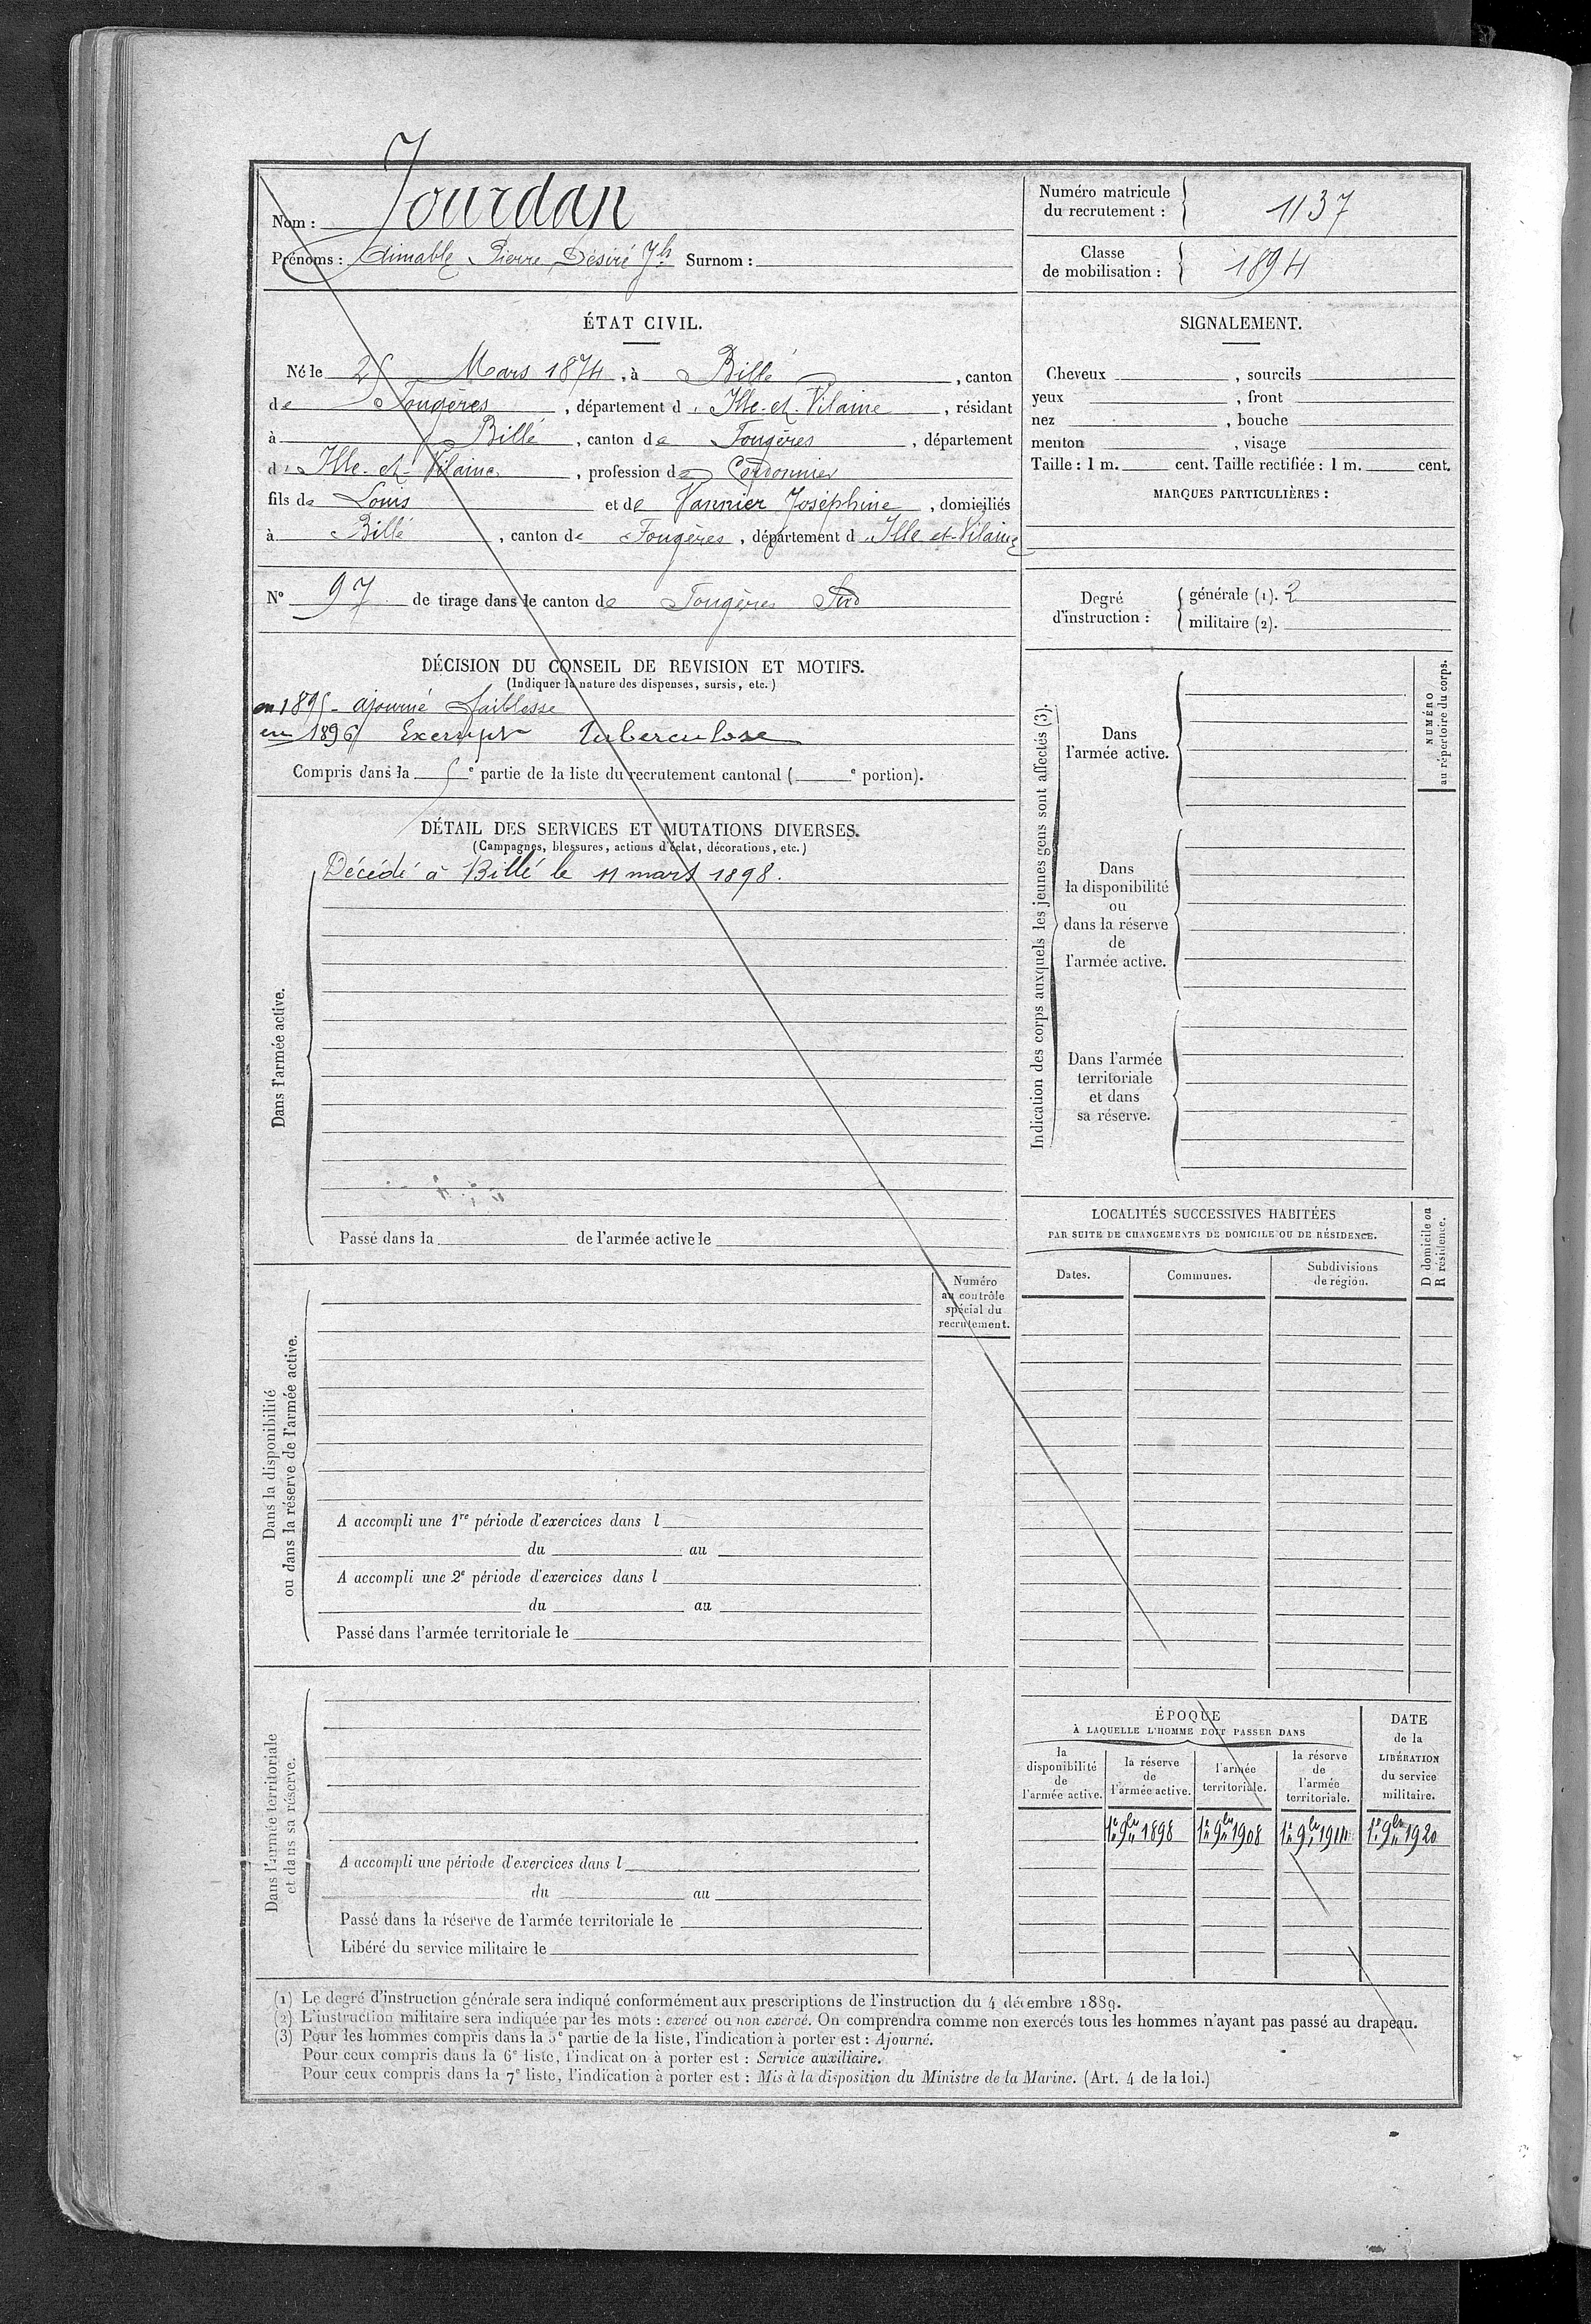 Nom : Jourdan
Prénoms : Aimable Pierre Désiré Jh Surnom :
Numéro matricule du recrutement : 1137
Classe de mobilisation : 1894
ÉTAT CIVIL.
Né le 25 Mars 1874, à Billé, canton
de Fougères, département d. Ille-et-Vilaine, résidant
à Billé, canton de Fougères, département
d. Ille-et-Vilaine, profession de Cordonnier
fils de Louis et de Vannier Joséphine, domiciliés
à Billé, canton de Fougères, département d. Ille-et-Vilaine
N° 97 de tirage dans le canton de Fougères Sud
DÉCISION DU CONSEIL DE REVISION ET MOTIFS.
(Indiquer la nature des dispenses, sursis, etc.)
en 1895 - ajourné faiblesse
en 1896 Exempt tuberculose
Compris dans la 5e partie de la liste du recrutement cantonal (e portion).
DÉTAIL DES SERVICES ET MUTATIONS DIVERSES.
(Campagnes, blessures, actions d'éclat, décorations, etc.)
Dans l'armée active.
Décédé à Billé le 11 mars 1898.
Passé dans la de l'armée active le
Numéro
au contrôle
spécial du
recrutement.
Dans la disponibilité
ou dans la réserve de l'armée active.
A accompli une 1re période d'exercices dans l
du au
A accompli une 2e période d'exercices dans l
du au
Passé dans l'armée territoriale le
Dans l'armée territoriale
et dans sa réserve.
A accompli une période d'exercices dans l
du au
Passé dans la réserve de l'armée territoriale le
Libéré du service militaire le
SIGNALEMENT.
Cheveux , sourcils
yeux , front
nez , bouche
menton , visage
Taille : 1 m. cent. Taille rectifiée : 1 m. cent.
MARQUES PARTICULIÈRES :
Degré d'instruction : générale (1). 2
militaire (2).
Indication des corps auxquels les jeunes gens sont affectés (3).
Dans
l'armée active.
Dans
la disponibilité
ou
dans la réserve
de
l'armée active.
Dans l'armée
territoriale
et dans
sa réserve.
NUMÉRO
au répertoire du corps.
LOCALITÉS SUCCESSIVES HABITÉES
PAR SUITE DE CHANGEMENTS DE DOMICILE OU DE RÉSIDENCE.
Dates. Communes. Subdivisions de région.
D domicile ou
R résidence.
ÉPOQUE
À LAQUELLE L'HOMME DOIT PASSER DANS
la disponibilité de l'armée active. la réserve de l'armée active. l'armée territoriale. la réserve de l'armée territoriale.
DATE de la LIBÉRATION du service militaire.
1er 9bre 1898 1er 9bre 1908 1er 9bre 1914 1er 9bre 1920
(1) Le degré d'instruction générale sera indiqué conformément aux prescriptions de l'instruction du 4 décembre 1889.
(2) L'instruction militaire sera indiquée par les mots : exercé ou non exercé. On comprendra comme non exercés tous les hommes n'ayant pas passé au drapeau.
(3) Pour les hommes compris dans la 5e partie de la liste, l'indication à porter est : Ajourné.
Pour ceux compris dans la 6e liste, l'indication à porter est : Service auxiliaire.
Pour ceux compris dans la 7e liste, l'indication à porter est : Mis à la disposition du Ministre de la Marine. (Art. 4 de la loi.)